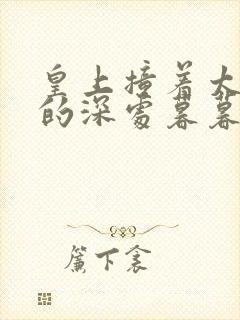 皇上撞着太
的深处暮暮
簾下衾